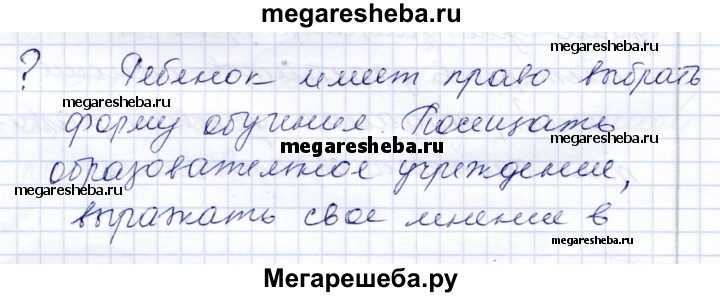 megaresheba.ru
? Ребенок имеет право выбрать
megaresheba.ru
megaresheba.ru
форму обучения. Посещать
megaresheba.ru
образовательное учреждение,
megaresheba.ru
выражать свое мнение в
megaresheba.ru
Мегарешеба.ру